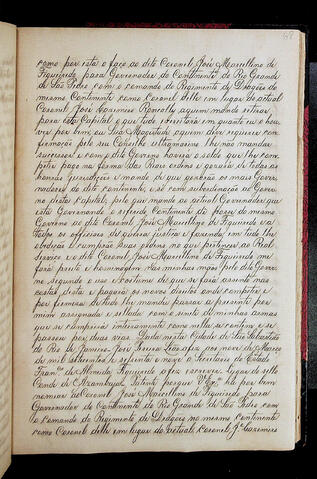 como por esta o faço ao dito Coronel José Marcellino de
Figueiredo para Governador do Continente do Rio Grande
de São Pedro com o comando do Regimento de Dragões do
mesmo Continente como Coronel delle em lugar do actual
Coronel José Cazimiro Roncally aquem mando retirar
para esta Capital o que tudo exercitará em quanto eu o hou-
ver por bem, ou Sua Magestade aquem deve requerer con-
firmação pelo seu Conselho Ultramarino lhe não mandar
successor e com o dito Governo haverá o soldo que lhe com-
petir pago na forma das Reaes ordens e gosará de todas as
honras jurisdicções e mando de que gosarão os mais Gover-
nadores do dito continente, e só com subordinação ao Gover-
no desta Capital; pelo que mando ao actual Governador que
está Governando o referido Continente dê posse do mesmo
Governo ao dito Coronel José Marcellino de Figueiredo e a
todos os officiaes de guerra justiça e fazenda, em tudo lhe
obedeção e cumprão suas ordens no que pertencer ao Real
serviço e o dito Coronel José Marcellino de Figueiredo me
fará preito e homenagem nas minhas mãos pelo dito Gover-
no segundo o uso e costume de que se fará assento nas
costas desta e passará os novos direitos onde competir e
por firmeza de tudo lhe mandei passar a presente por
mim assignada e sellada com o sinete de minhas armas
que se cumprirá inteiramente como nella se contem e se
passou por duas vias. Dada nesta Cidade de São Sebastião
do Rio de Janeiro. José Pereira Leão a fez aos nove de Março
de mil setecentos e sessenta e nove o Secretario do Estado
Fran.co de Almeida Figueiredo a fez escrever. Lugar do sello
Conde de Azambuja. Patente porque V.a Ex.a ha por bem
nomear ao Coronel José Marcellino de Figueiredo para
Governador do Continente do Rio Grande de São Pedro com
o comando do Regimento de Dragões no mesmo continente
como Coronel delle em lugar do actual Coronel J.e Cazimiro